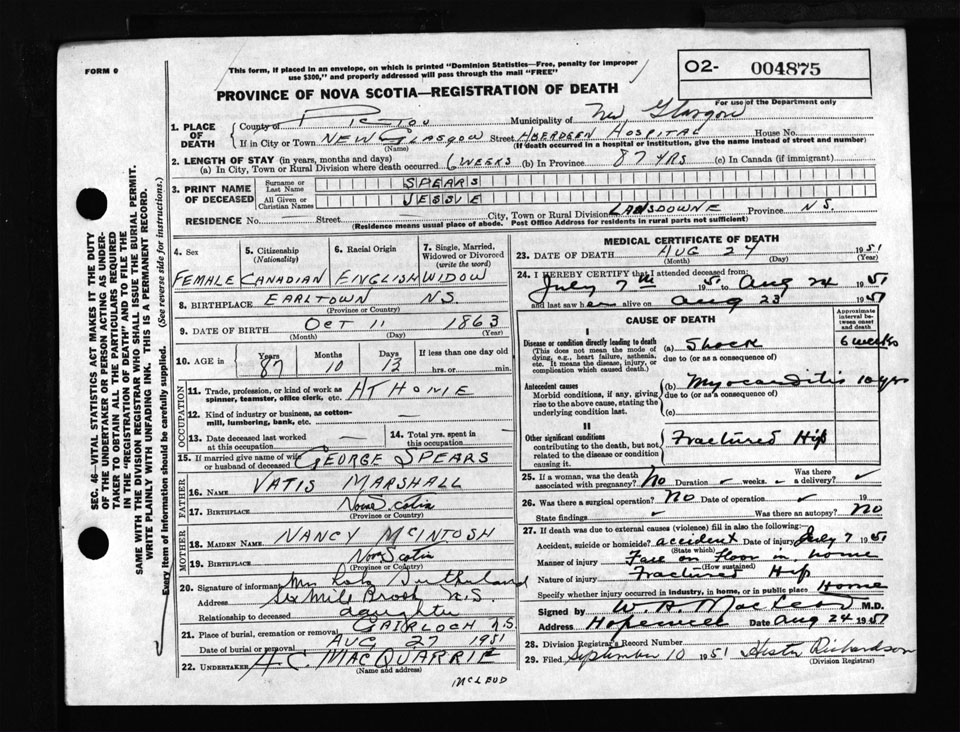 FORM 9
This form, if placed in an envelope, on which is printed "Dominion Statistics—Free, penalty for improper
use $300," and properly addressed will pass through the mail "FREE"
O2- 004875
For use of the Department only
PROVINCE OF NOVA SCOTIA—REGISTRATION OF DEATH
1. PLACE OF DEATH
County of PICTOU Municipality of New Glasgow
If in City or Town NEW GLASGOW Street ABERDEEN HOSPITAL House No.
(Name) (If death occurred in a hospital or institution, give the name instead of street and number)
2. LENGTH OF STAY (in years, months and days)
(a) In City, Town or Rural Division where death occurred 6 WEEKS (b) In Province 87 YRS (c) In Canada (if immigrant)
3. PRINT NAME OF DECEASED
Surname or Last Name SPEARS
All Given or Christian Names JESSIE
RESIDENCE No. — Street — City, Town or Rural Division LANSDOWNE Province N.S.
(Residence means usual place of abode. Post Office Address for residents in rural parts not sufficient)
4. Sex FEMALE
5. Citizenship (Nationality) CANADIAN
6. Racial Origin ENGLISH
7. Single, Married, Widowed or Divorced (write the word) WIDOW
8. BIRTHPLACE EARLTOWN N.S.
(Province or Country)
9. DATE OF BIRTH OCT 11 1863
(Month) (Day) (Year)
10. AGE in Years 87 Months 10 Days 13 If less than one day old hrs. or min.
OCCUPATION
11. Trade, profession, or kind of work as spinner, teamster, office clerk, etc. AT HOME
12. Kind of industry or business, as cotton-mill, lumbering, bank, etc. —
13. Date deceased last worked at this occupation —
14. Total yrs. spent in this occupation —
15. If married give name of wife or husband of deceased GEORGE SPEARS
FATHER
16. Name VATIS MARSHALL
17. Birthplace Nova Scotia
(Province or Country)
MOTHER
18. Maiden Name NANCY MCINTOSH
19. Birthplace Nova Scotia
(Province or Country)
20. Signature of informant Mrs Robt Sutherland
Address Six Mile Brook N.S.
Relationship to deceased daughter
21. Place of burial, cremation or removal GAIRLOCH N.S.
Date of burial or removal AUG 27 1951
22. UNDERTAKER A.C. MACQUARRIE
(Name and address)
MCLEOD
MEDICAL CERTIFICATE OF DEATH
23. DATE OF DEATH AUG 24 1951
(Month) (Day) (Year)
24. I HEREBY CERTIFY that I attended deceased from
July 7th 1951 to Aug 24 1951
and last saw her alive on Aug 23 1951
CAUSE OF DEATH
Approximate interval between onset and death
I
Disease or condition directly leading to death
(This does not mean the mode of dying, e.g., heart failure, asthenia, etc. It means the disease, injury, or complication which caused death.)
(a) Shock 6 weeks
due to (or as a consequence of)
Antecedent causes
Morbid conditions, if any, giving rise to the above cause, stating the underlying condition last.
(b) Myocarditis 10 yrs
due to (or as a consequence of)
(c)
II
Other significant conditions
contributing to the death, but not related to the disease or condition causing it.
Fractured Hip
25. If a woman, was the death associated with pregnancy? No Duration weeks. Was there a delivery?
26. Was there a surgical operation? No Date of operation 19
State findings Was there an autopsy? No
27. If death was due to external causes (violence) fill in also the following:
Accident, suicide or homicide? accident Date of injury July 7 1951
(State which)
Manner of injury Fall on Floor in home
(How sustained)
Nature of injury Fractured Hip
Specify whether injury occurred in industry, in home, or in public place Home
Signed by W. A. MacLeod M.D.
Address Hopewell Date Aug 24 1951
28. Division Registrar's Record Number
29. Filed September 10 1951 Hester Richardson
(Division Registrar)
SEC. 46—VITAL STATISTICS ACT MAKES IT THE DUTY
OF THE UNDERTAKER OR PERSON ACTING AS UNDER-
TAKER TO OBTAIN ALL THE PARTICULARS REQUIRED
IN THE "REGISTRATION OF DEATH" AND TO FILE THE
SAME WITH THE DIVISION REGISTRAR WHO SHALL ISSUE THE BURIAL PERMIT.
WRITE PLAINLY WITH UNFADING INK. THIS IS A PERMANENT RECORD.
Every item of Information should be carefully supplied. (See reverse side for instructions.)